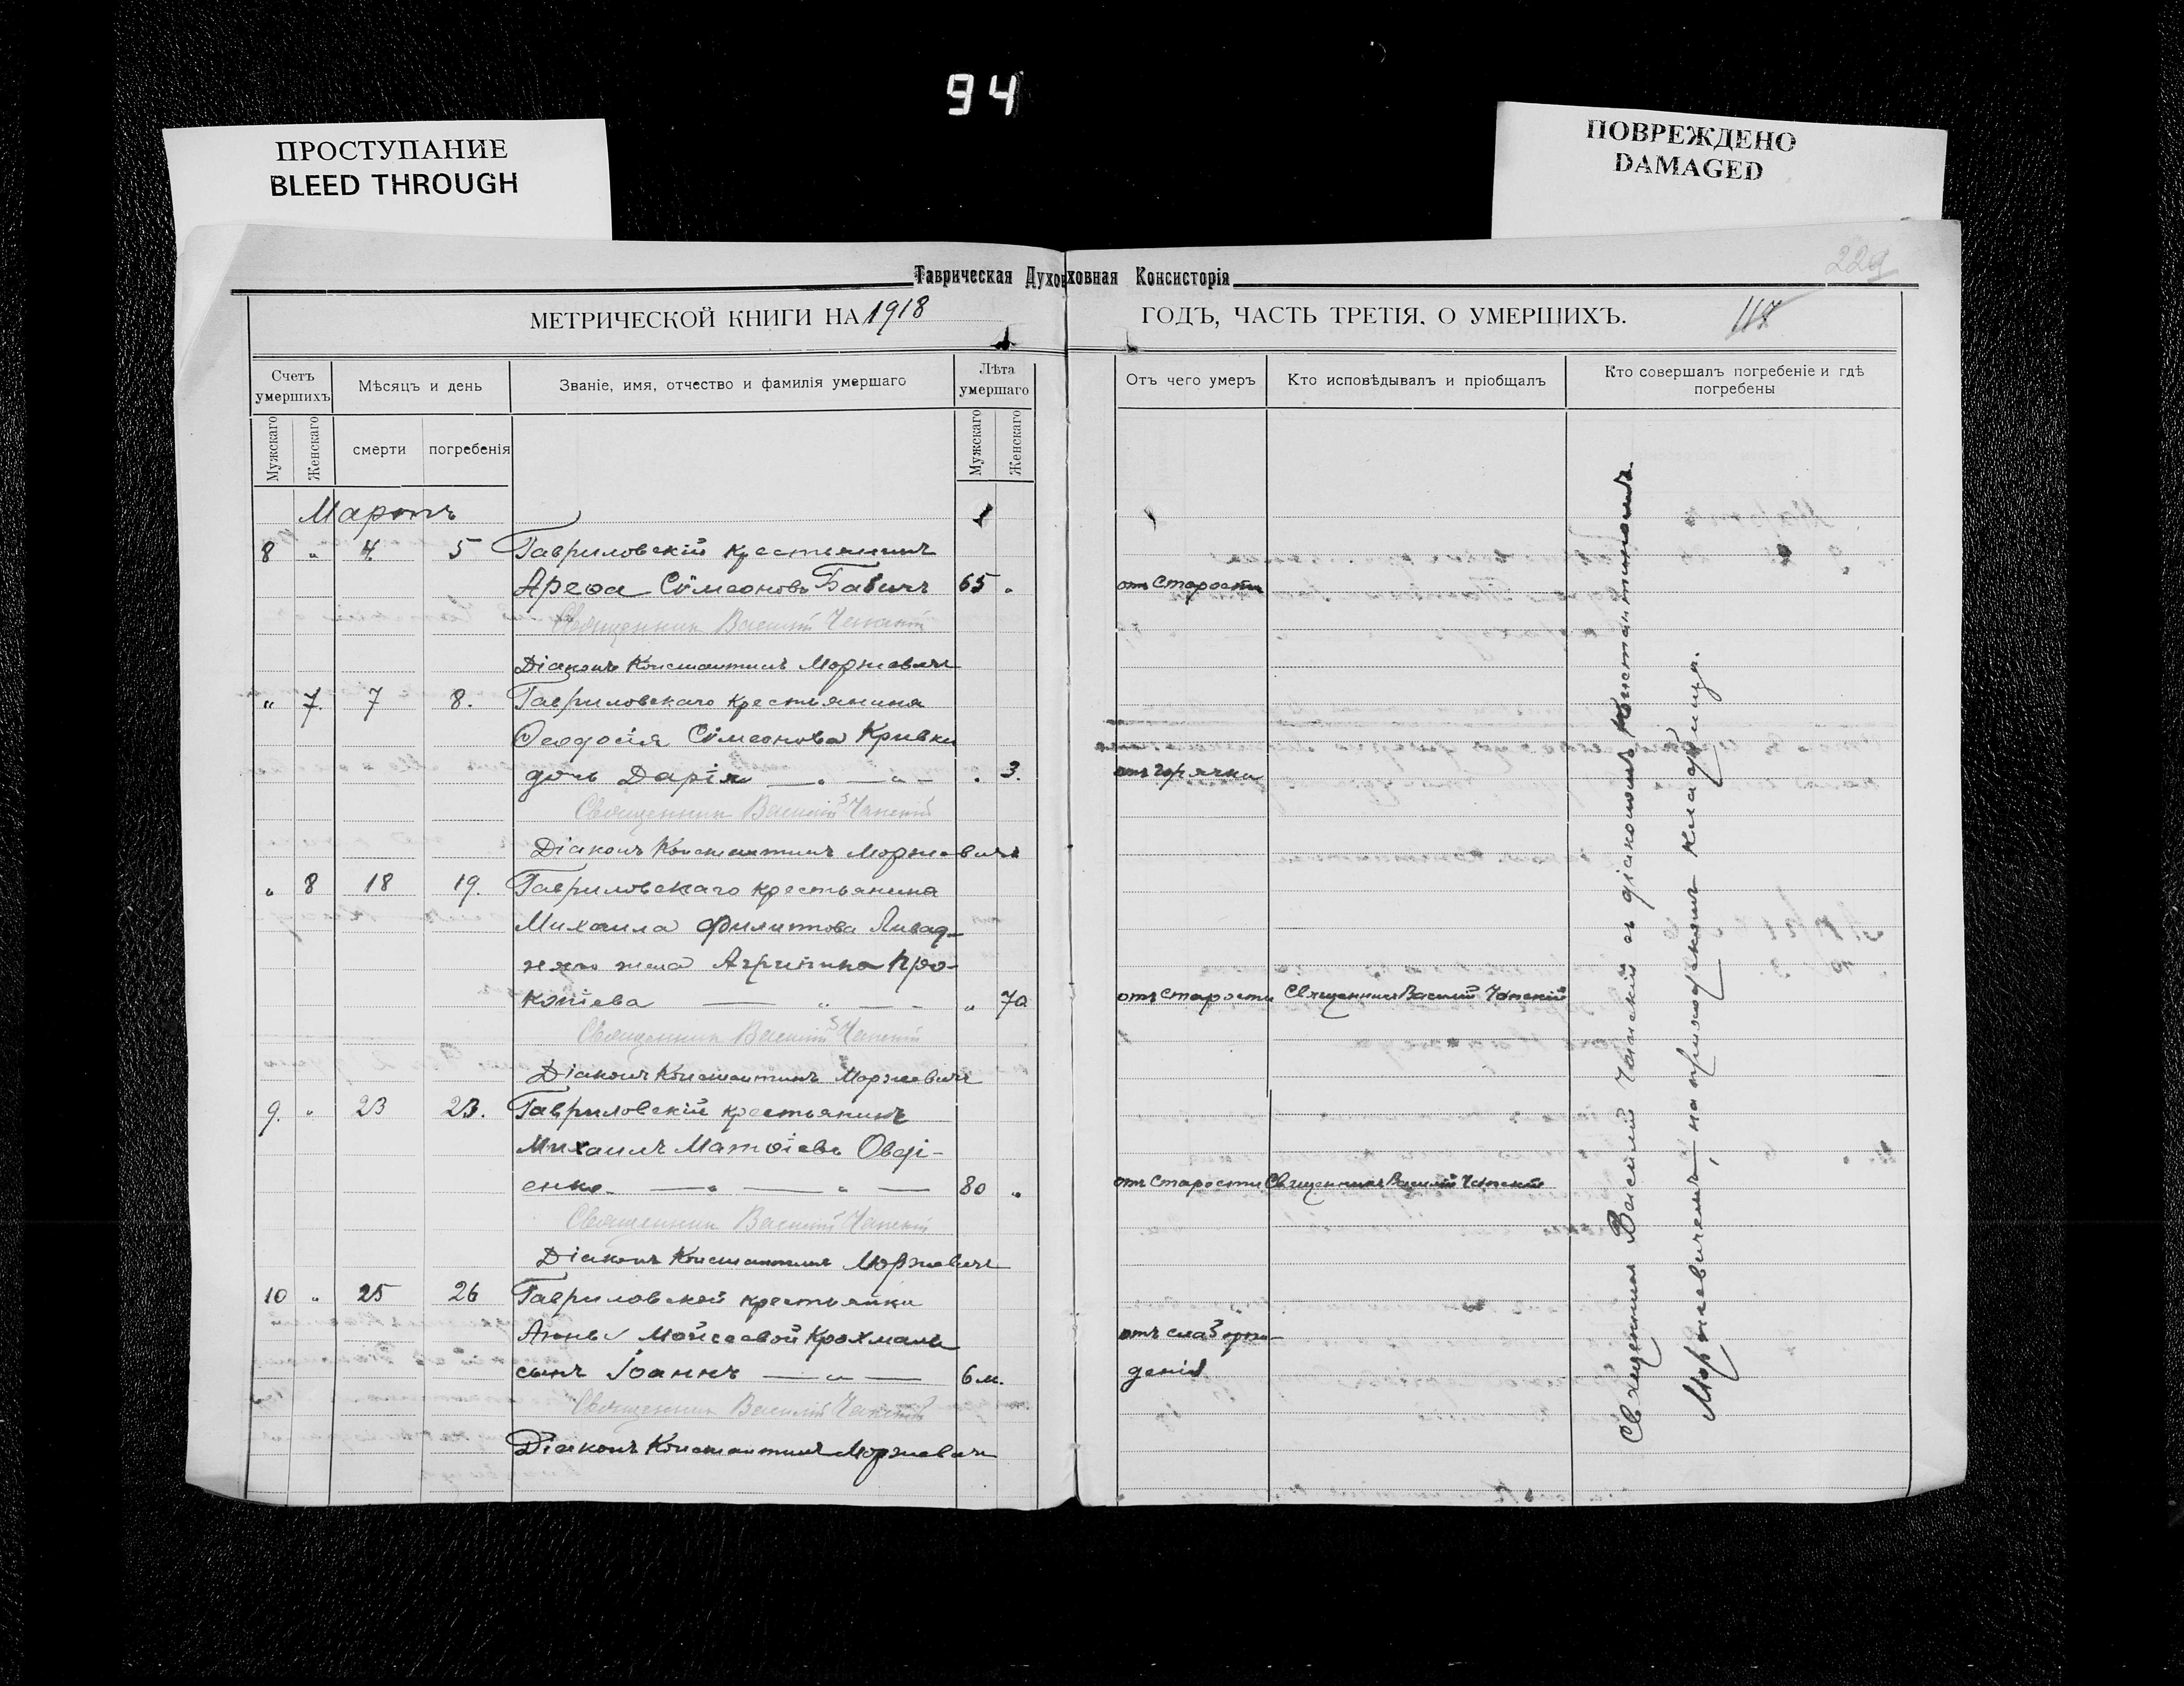 94
ПРОСТУПАНИЕ
BLEED THROUGH
ПОВРЕЖДЕНО
DAMAGED
229
Таврическая Духовная Консисторія
МЕТРИЧЕСКОЙ КНИГИ НА 1918
ГОДЪ, ЧАСТЬ ТРЕТІЯ, О УМЕРШИХЪ.
117
Счетъ умершихъ
Мѣсяцъ и день
Званіе, имя, отчество и фамилія умершаго
Лѣта умершаго
Отъ чего умеръ
Кто исповѣдывалъ и пріобщалъ
Кто совершалъ погребеніе и гдѣ погребены
Мужскаго
Женскаго
смерти
погребенія
Мужскаго
Женскаго
Мартъ
8 " 4 5 Гавриловскій крестьянинъ
Ареѳа Сѵмеоновъ Бабичъ 65 " отъ старости
Священник Василій Чапскій
Діаконъ Константинъ Моржевичъ
" 7. 7 8. Гавриловскаго крестьянина
Ѳеодосія Сѵмеонова Кривки
дочь Дарія — " — " — " 3. отъ горячки
Священник Василій Чапскій
Діаконъ Константинъ Моржевичъ
" 8 18 19. Гавриловскаго крестьянина
Михаила Филиппова
жена Агрипина Про-
копіева — " — " 70 отъ старости Священникъ Василій Чапскій
Священник Василій Чапскій
Діаконъ Константинъ Моржевичъ
9. " 23 23. Гавриловскій крестьянинъ
Михаилъ Матѳіевъ Овді-
енко — " — " — 80 " отъ старости Священникъ Василій Чапскій
Священник Василій Чапскій
Діаконъ Константинъ Моржевичъ
10 " 25 26 Гавриловской крестьянки
Анны Мойсеевой Крохмаль отъ слаб. рож-
сынъ Іоаннъ — " — 6 м. денія
Священник Василій Чапскій
Діаконъ Константинъ Моржевичъ
Священникъ Василій Чапскій съ діакономъ Константиномъ
Моржевичемъ, на приходскомъ кладбищѣ.